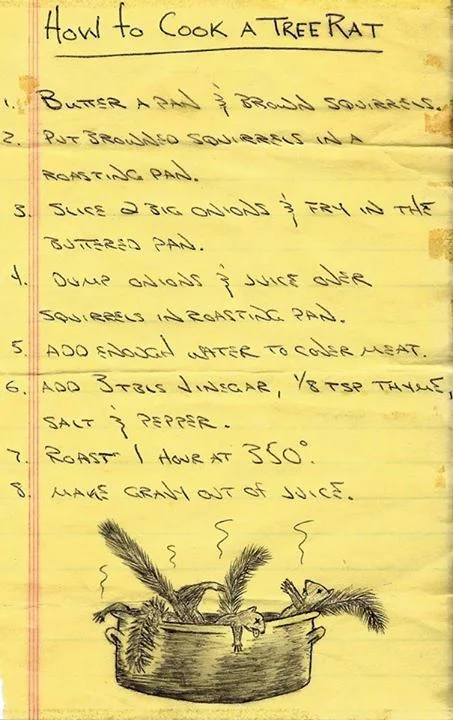 How to Cook A Tree Rat
1. Butter a pan & brown squirrels.
2. Put browned squirrels in a
roasting pan.
3. Slice 2 big onions & fry in the
buttered pan.
4. Dump onions & juice over
squirrels in roasting pan.
5. Add enough water to cover meat.
6. Add 3 tbls vinegar, 1/8 tsp thyme,
salt & pepper.
7. Roast 1 hour at 350°.
8. Make gravy out of juice.